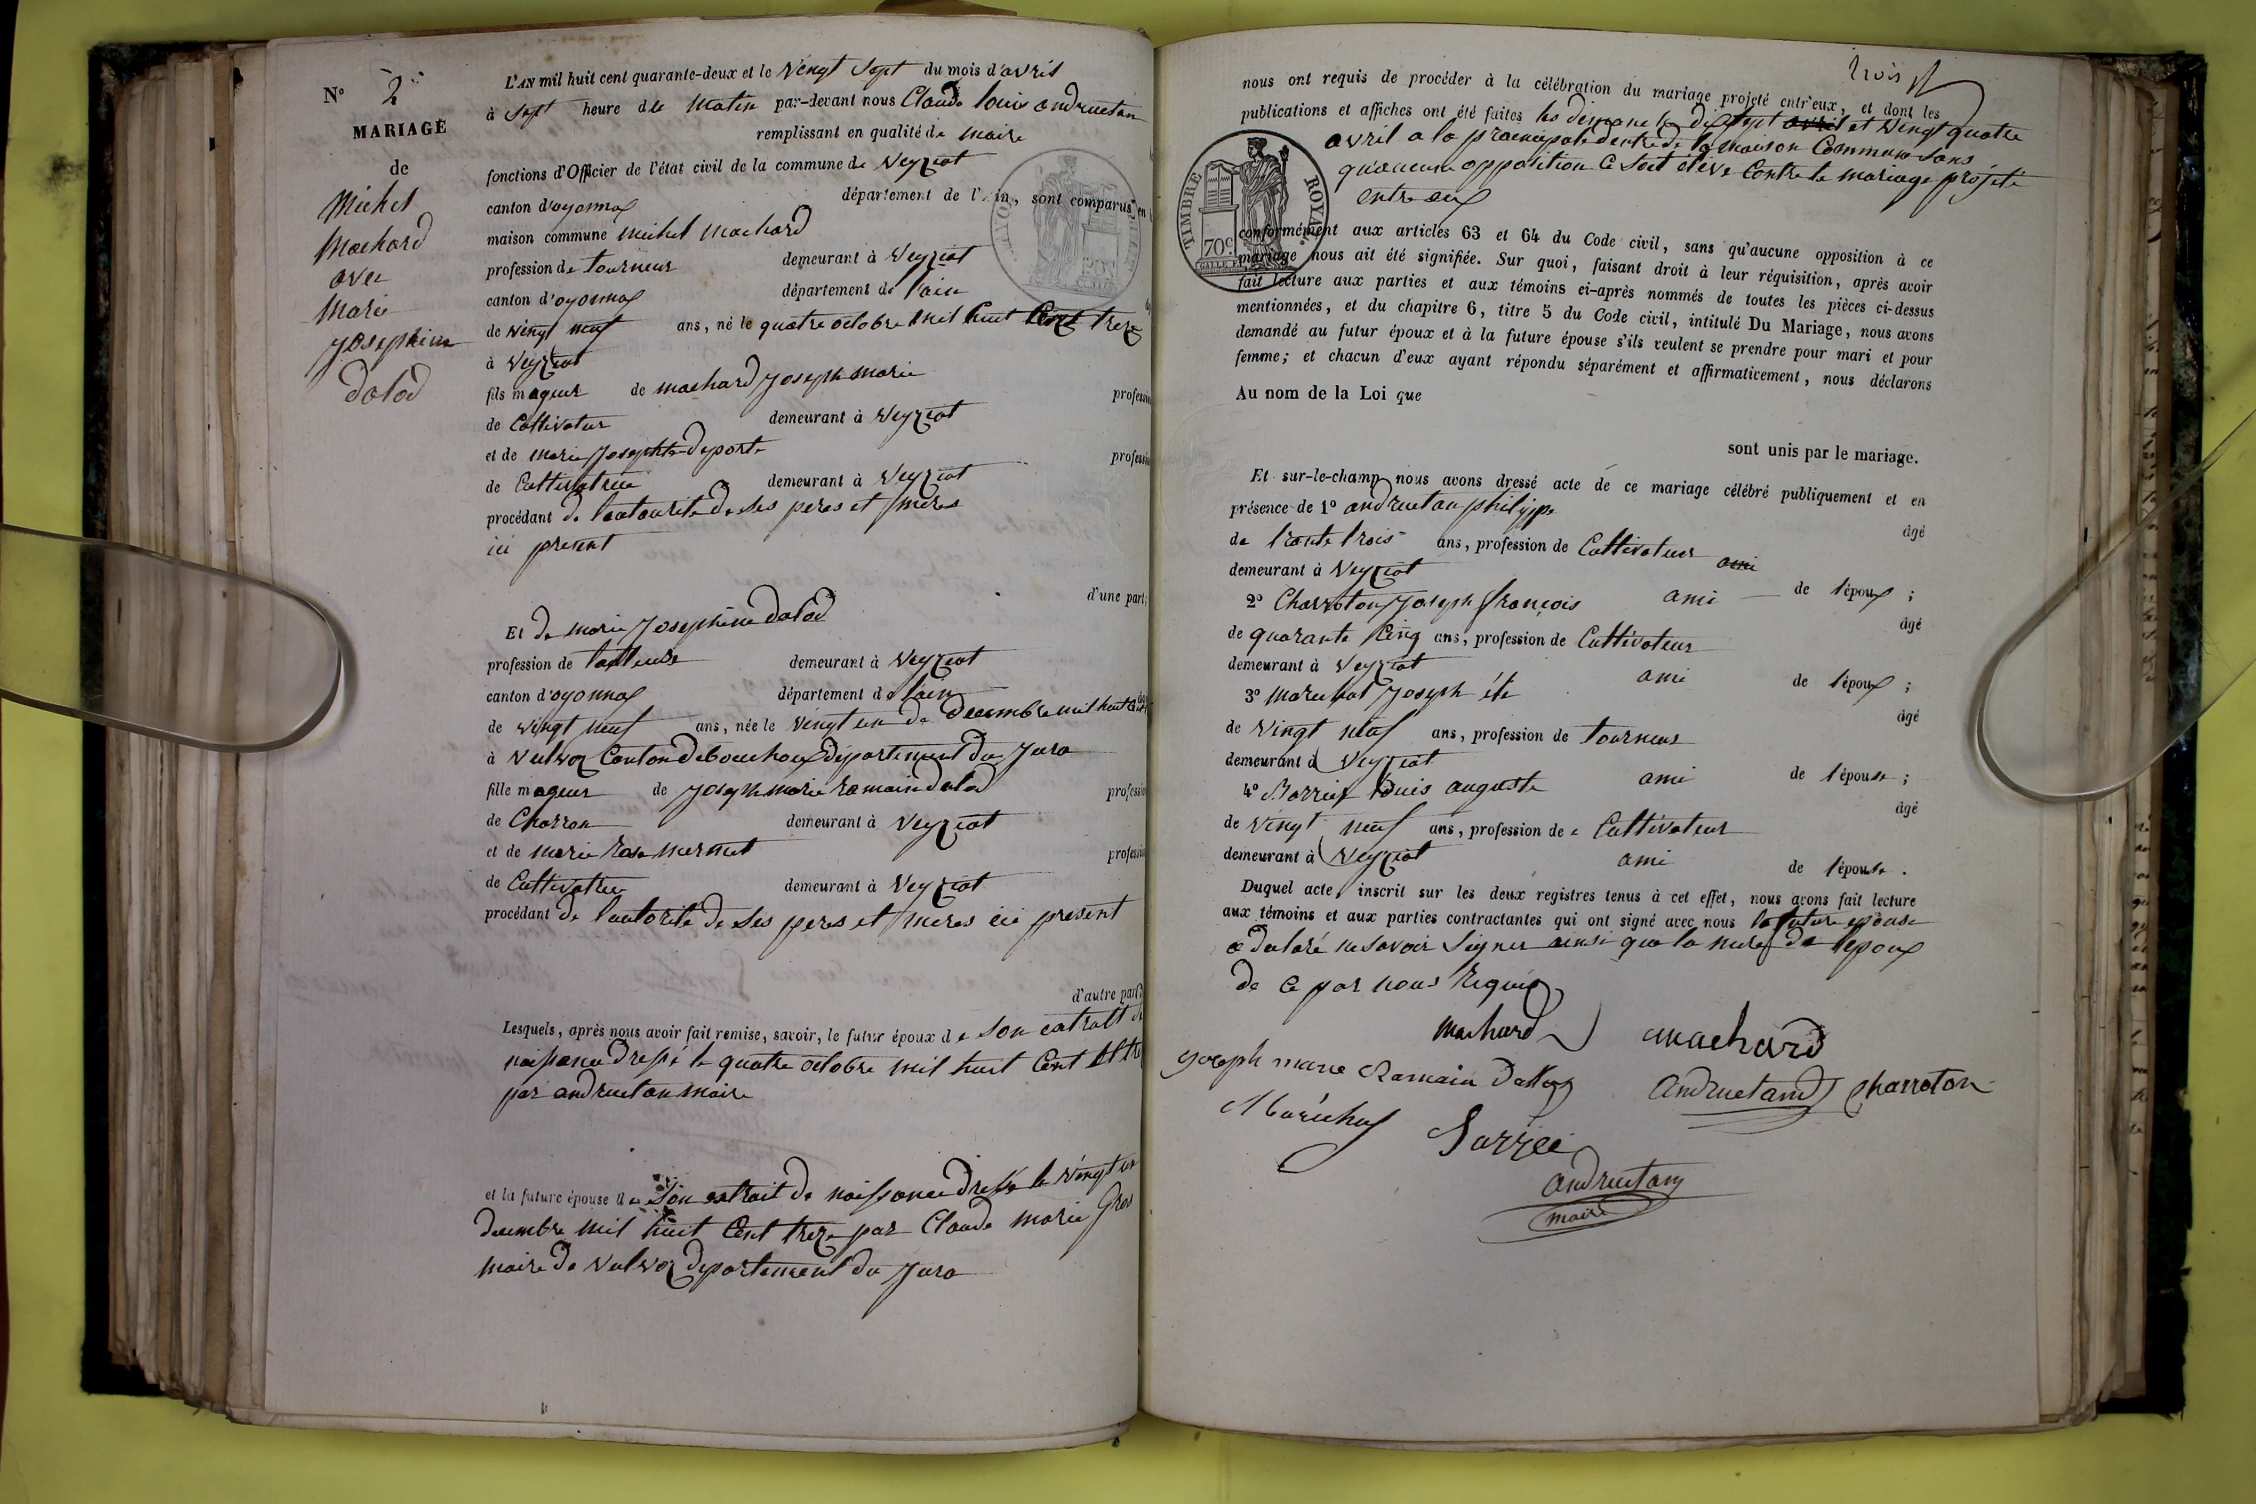 N° 2
MARIAGE
de
Michel
Machard
avec
Marie
Josephine
dalod
L'AN mil huit cent quarante-deux et le vengt sept du mois d'avril
à sept heure d le matin par-devant nous Claude louis andruetan
remplissant en qualité de maire
fonctions d'Officier de l'état civil de la commune de Veyziat
canton d'oyonnax département de l'Ain, sont comparus en
maison commune michel machard
profession de tourneur demeurant à Veyziat
canton d'oyonnax département de l'ain
de vingt neuf ans, né le quatre octobre mil huit Cent treze
à Veyziat
fils mageur de machard Joseph marie profession
de Cultivateur demeurant à Veyziat
et de marie Josephte deporte profession
de Cultivatrice demeurant à Veyziat
procédant de lautourité de ses peres et meres
ici present
d'une part;
Et de marie Josephine dalod
profession de demeurant à Veyziat
canton d'oyonnax département de lain
de vingt neuf ans, née le vengt un de decembre mil huit
à Vulvoz Canton de bouchoux département du Jura
fille mageur de Joseph marie romain dalod profession
de Charron demeurant à Veyziat
et de marie rose mermet profession
de Cultivatrice demeurant à Veyziat
procédant de l'autorité de ses peres et meres ici present
d'autre part
Lesquels, après nous avoir fait remise, savoir, le futur époux d e son extrait de
naissance dressé le quatre octobre mil huit Cent
par andruetan maire
et la future épouse d e son extrait de naissance dressé le vengt un
decembre mil huit Cent treze par Claude marie gros
maire de Vulvoz departement du Jura
trois
nous ont requis de procéder à la célébration du mariage projeté entr'eux, et dont les
publications et affiches ont été faites les dimanche dix sept avril et vengt quatre
avril a la principale dentré de la maison Commune sans
qu'aucune opposition ce soit élevé Contre le mariage projeté
entre eux
TIMBRE ROYAL
70 c.
conformément aux articles 63 et 64 du Code civil, sans qu'aucune opposition à ce
mariage nous ait été signifiée. Sur quoi, faisant droit à leur réquisition, après avoir
fait lecture aux parties et aux témoins ci-après nommés de toutes les pièces ci-dessus
mentionnées, et du chapitre 6, titre 5 du Code civil, intitulé Du Mariage, nous avons
demandé au futur époux et à la future épouse s'ils veulent se prendre pour mari et pour
femme; et chacun d'eux ayant répondu séparément et affirmativement, nous déclarons
Au nom de la Loi que
sont unis par le mariage.
Et sur-le-champ nous avons dressé acte de ce mariage célébré publiquement et en
présence de 1° andruetan philippe âgé
de trante trois ans, profession de Cultivateur ami
demeurant à Veyziat ami de l'époux ;
2° Charroton Joseph françois âgé
de quarante Cinq ans, profession de Cultivateur
demeurant à Veyziat ami de l'époux ;
3° Marechal Joseph âgé
de vingt neuf ans, profession de tourneur
demeurant à Veyziat ami de l'épouse ;
4° louis auguste âgé
de vingt neuf ans, profession de Cultivateur
demeurant à Veyziat ami de l'épouse .
Duquel acte, inscrit sur les deux registres tenus à cet effet, nous avons fait lecture
aux témoins et aux parties contractantes qui ont signé avec nous la future epouse
a déclaré ne savoir signer ainsi que la mere de l'epoux
de ce par nous requis
Machard machard
joseph marie Romain Dalloz Andruetand Charroton
Maréchal
andruetan
maire